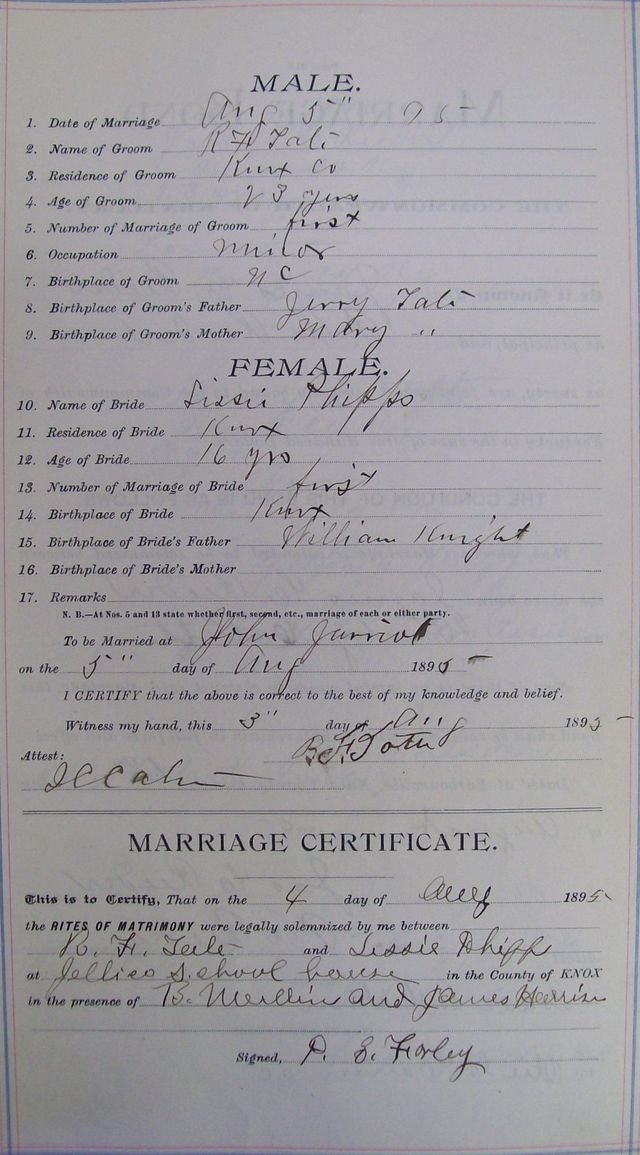 MALE.
1. Date of Marriage Aug 5" 95
2. Name of Groom R F Tate
3. Residence of Groom Knox Co
4. Age of Groom 23 years
5. Number of Marriage of Groom first
6. Occupation Minor
7. Birthplace of Groom NC
8. Birthplace of Groom's Father Jerry Tate
9. Birthplace of Groom's Mother Mary "
FEMALE.
10. Name of Bride Lissie Phipps
11. Residence of Bride Knox
12. Age of Bride 16 yrs
13. Number of Marriage of Bride first
14. Birthplace of Bride Knox
15. Birthplace of Bride's Father William Knight
16. Birthplace of Bride's Mother
17. Remarks
N. B.—At Nos. 5 and 13 state whether first, second, etc., marriage of each or either party.
To be Married at John
on the 5" day of Aug 1895
I CERTIFY that the above is correct to the best of my knowledge and belief.
Witness my hand, this 3" day of Aug 1895
Attest:
MARRIAGE CERTIFICATE.
This is to Certify, That on the 4 day of Aug 1895
the RITES OF MATRIMONY were legally solemnized by me between
R. F. and Lissie Phipp
at Jellico School house in the County of KNOX
in the presence of B. and James
Signed,